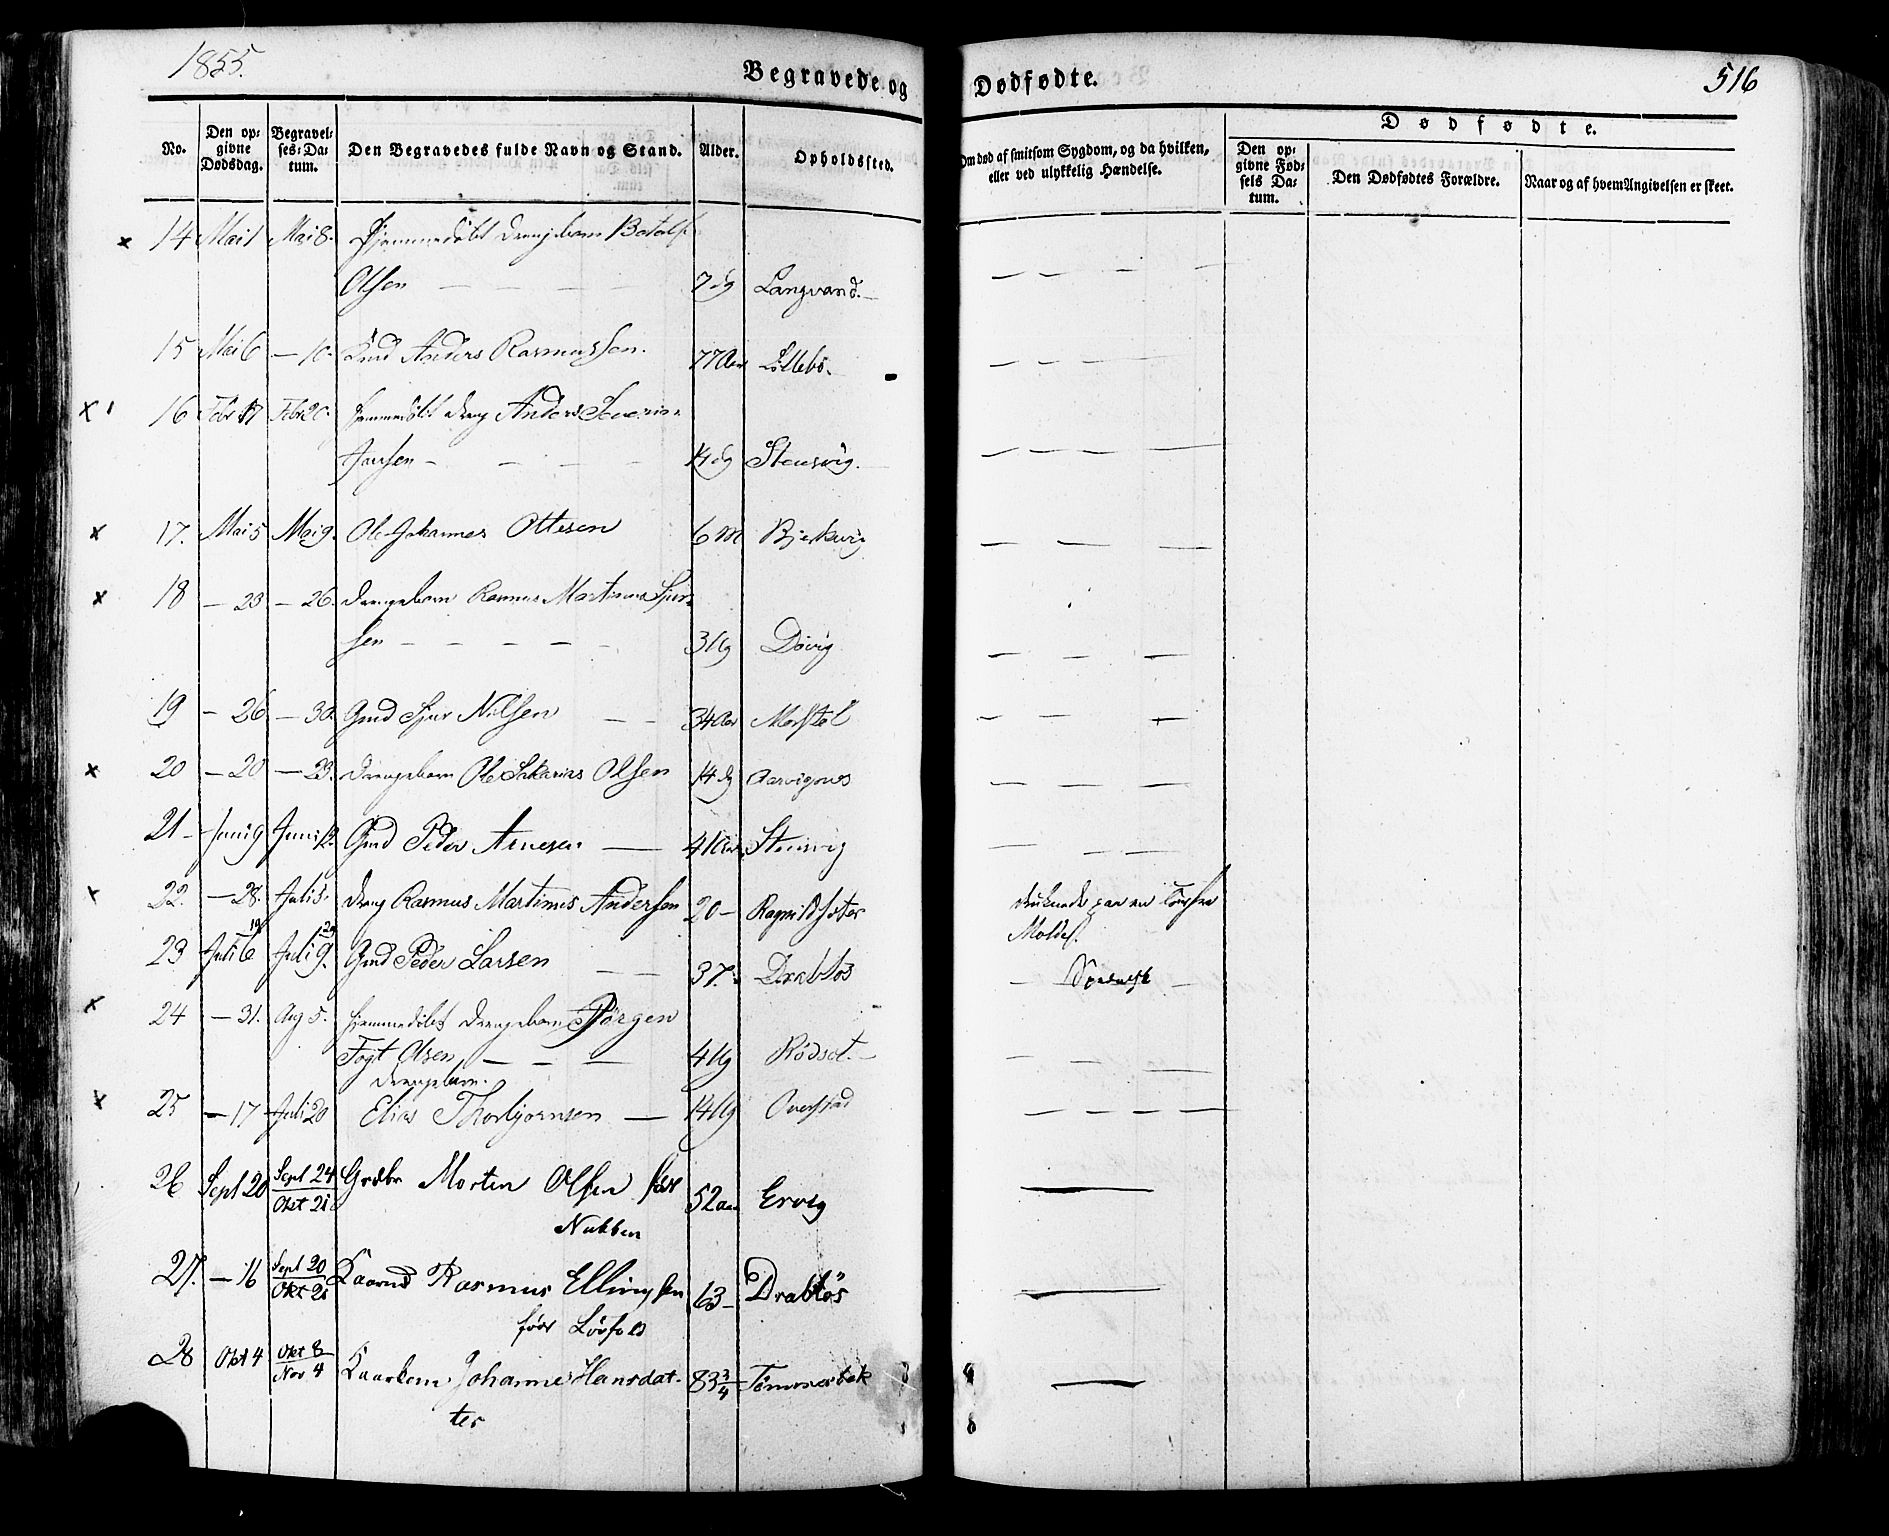 1855.
Begravede og Dødfødte.
516
No.
Den opgivne Dødsdag.
Begravelses-Datum.
Den Begravedes fulde Navn og Stand.
Alder.
Opholdssted.
Om død af smitsom Sygdom, og da hvilken, eller ved ulykkelig Hændelse.
Dødfødte.
Den opgivne Fødsels Datum.
Den Dødfødtes Forældre.
Naar og af hvem Angivelsen er skeet.
14 Mai 1 Mai 8. Hjemmedøbt Drengebarn Botolf
Olsen — — — — 7 dg Langvand. —
15 Mai 6 — 10. Anders Rasmussen. 77 Aar Lillebø.
16 Febr 17 Febr 20. hjemmedøbt Dreng Anders Severin
Jansen — — — — 14 dg Stensvig.
17. Mai 5 Mai 9. Ole Johannes Ottesen 6 M Bjerkevig
18 — 23 — 26. Drengebarn Rasmus Martinus Sjur-
sen — — — — — 3 Ug Døvig
19 — 26 — 30. Gmd Sjur Nilsen — — 34 Aar Morstøl
20 — 20 — 23. Drengebarn Ole Sakarias Olsen 14 dg Aarvignes
21 — Juni 9 Juni 12. Gmd Peder Arnesen — 41 Aar Stensvig
22. — 28. Juli 5. Dreng Rasmus Martinus Andersen 20 — Ragnildsæter druknede paa en Tour fra
Molde.
23 Juli 6 19 Juli 9. 29 Gmd Peder Larsen — — 37. Drabløs
24 — 31. Aug 5. hjemmedøbt Drengebarn Jørgen
Fogt Olsen, — — — 4 Ug Rødset. —
Drengebarn.
25 — 17 Juli 20 Elias Thorbjørnsen — 14 Ug Overstad
26 Sept 20 Sept 24 Okt 21 Grdbr Morten Olsen før 52 Aar Ervig
Nubben
27. — 16 Sept 20 Okt 21 Kaarmd Rasmus Ellingsen 63 — Drabløs
før Løvfold
28 Okt 4 Okt 8 Nov 4 Kaarkone Johanne Hansdat-
ter 83 3/4 Tømmerbek